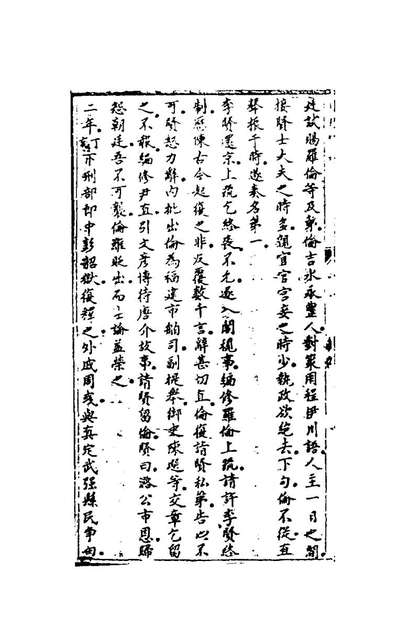 廷試賜羅倫等及第倫吉水永豐人對策用程伊川語人主一日之間
接賢士大夫之時多親宦官宮妾之時少執政欲絶去下句倫不從直
聲振于時遂奏名第一
李賢還京上疏乞終喪不允遂入閣視事編修羅倫上疏請許李賢終
制歷陳古今起復之非反覆數千言辭甚切直倫復請賢私第告以不
可賢怒力辭內批出倫為福建市舶司副提舉御史陳選等交章乞留
之不報編修尹直引文彥博待唐介故事請賢留倫賢曰潞公市恩歸
怨朝廷吾不可襲倫雖貶出而士論益榮之
二年丁亥下刑部郎中彭韶獄復釋之外戚周彧與真定武强縣民爭田